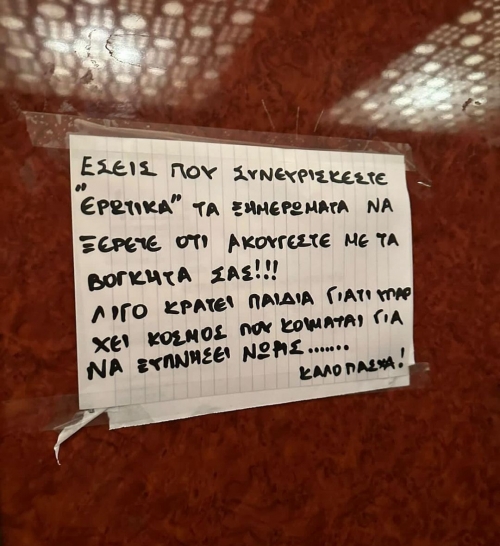 ΕΣΕΙΣ ΠΟΥ ΣΥΝΕΥΡΙΣΚΕΣΤΕ
"ΕΡΩΤΙΚΑ" ΤΑ ΞΗΜΕΡΩΜΑΤΑ ΝΑ
ΞΕΡΕΤΕ ΟΤΙ ΑΚΟΥΓΕΣΤΕ ΜΕ ΤΑ
ΒΟΓΚΗΤΑ ΣΑΣ!!!
ΛΙΓΟ ΚΡΑΤΕΙ ΠΑΙΔΙΑ ΓΙΑΤΙ ΥΠΑΡ
ΧΕΙ ΚΟΣΜΟΣ ΠΟΥ ΚΟΙΜΑΤΑΙ ΓΙΑ
ΝΑ ΞΥΠΝΗΣΕΙ ΝΩΡΙΣ.......
ΚΑΛΟ ΠΑΣΧΑ!